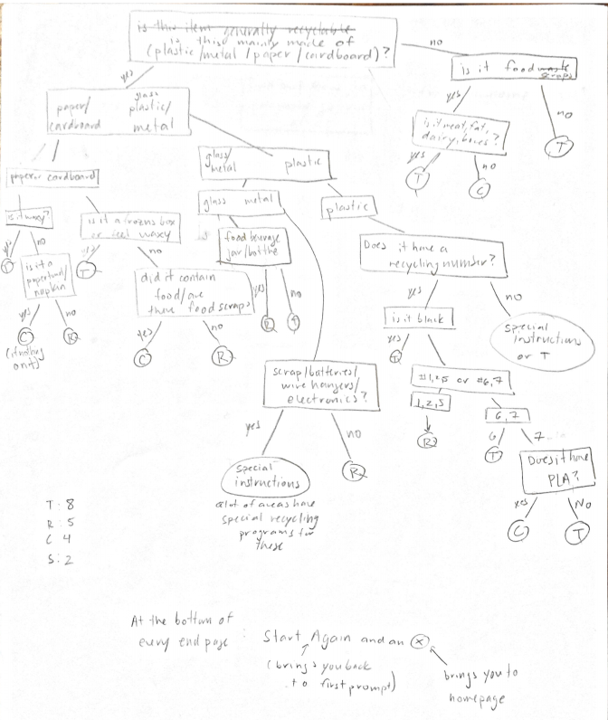 is this item generally recyclable
is this mainly made of
(plastic/metal/paper/cardboard)?
no
yes
is it food waste
scraps
yes
no
T
Is it meat, fat,
dairy, bones?
yes
no
T
C
paper/
cardboard
glass
plastic/
metal
glass/
metal
plastic
paper cardboard
glass metal
plastic
is it waxy?
yes
no
T
is it a
paper towel/
napkin
yes
no
C
(if nothing
on it)
R
is it a frozen box
or feel waxy
yes
no
T
did it contain
food/are
there food scraps
yes
no
C
R
food beverage
jar/bottle
yes
no
R
scrap/batteries/
wire hangers/
electronics?
yes
no
special
instructions
R
a lot of areas have
special recycling
programs for
these
Does it have a
recycling number?
yes
no
special
instructions
or T
is it black
yes
#1,2,5 or #6,7
R
6,7
6
7
T
Does it have
PLA?
yes
No
C
T
T: 8
R: 5
C 4
S: 2
At the bottom of
every end page : Start Again and an X
(brings you back
to first prompt)
brings you to
homepage